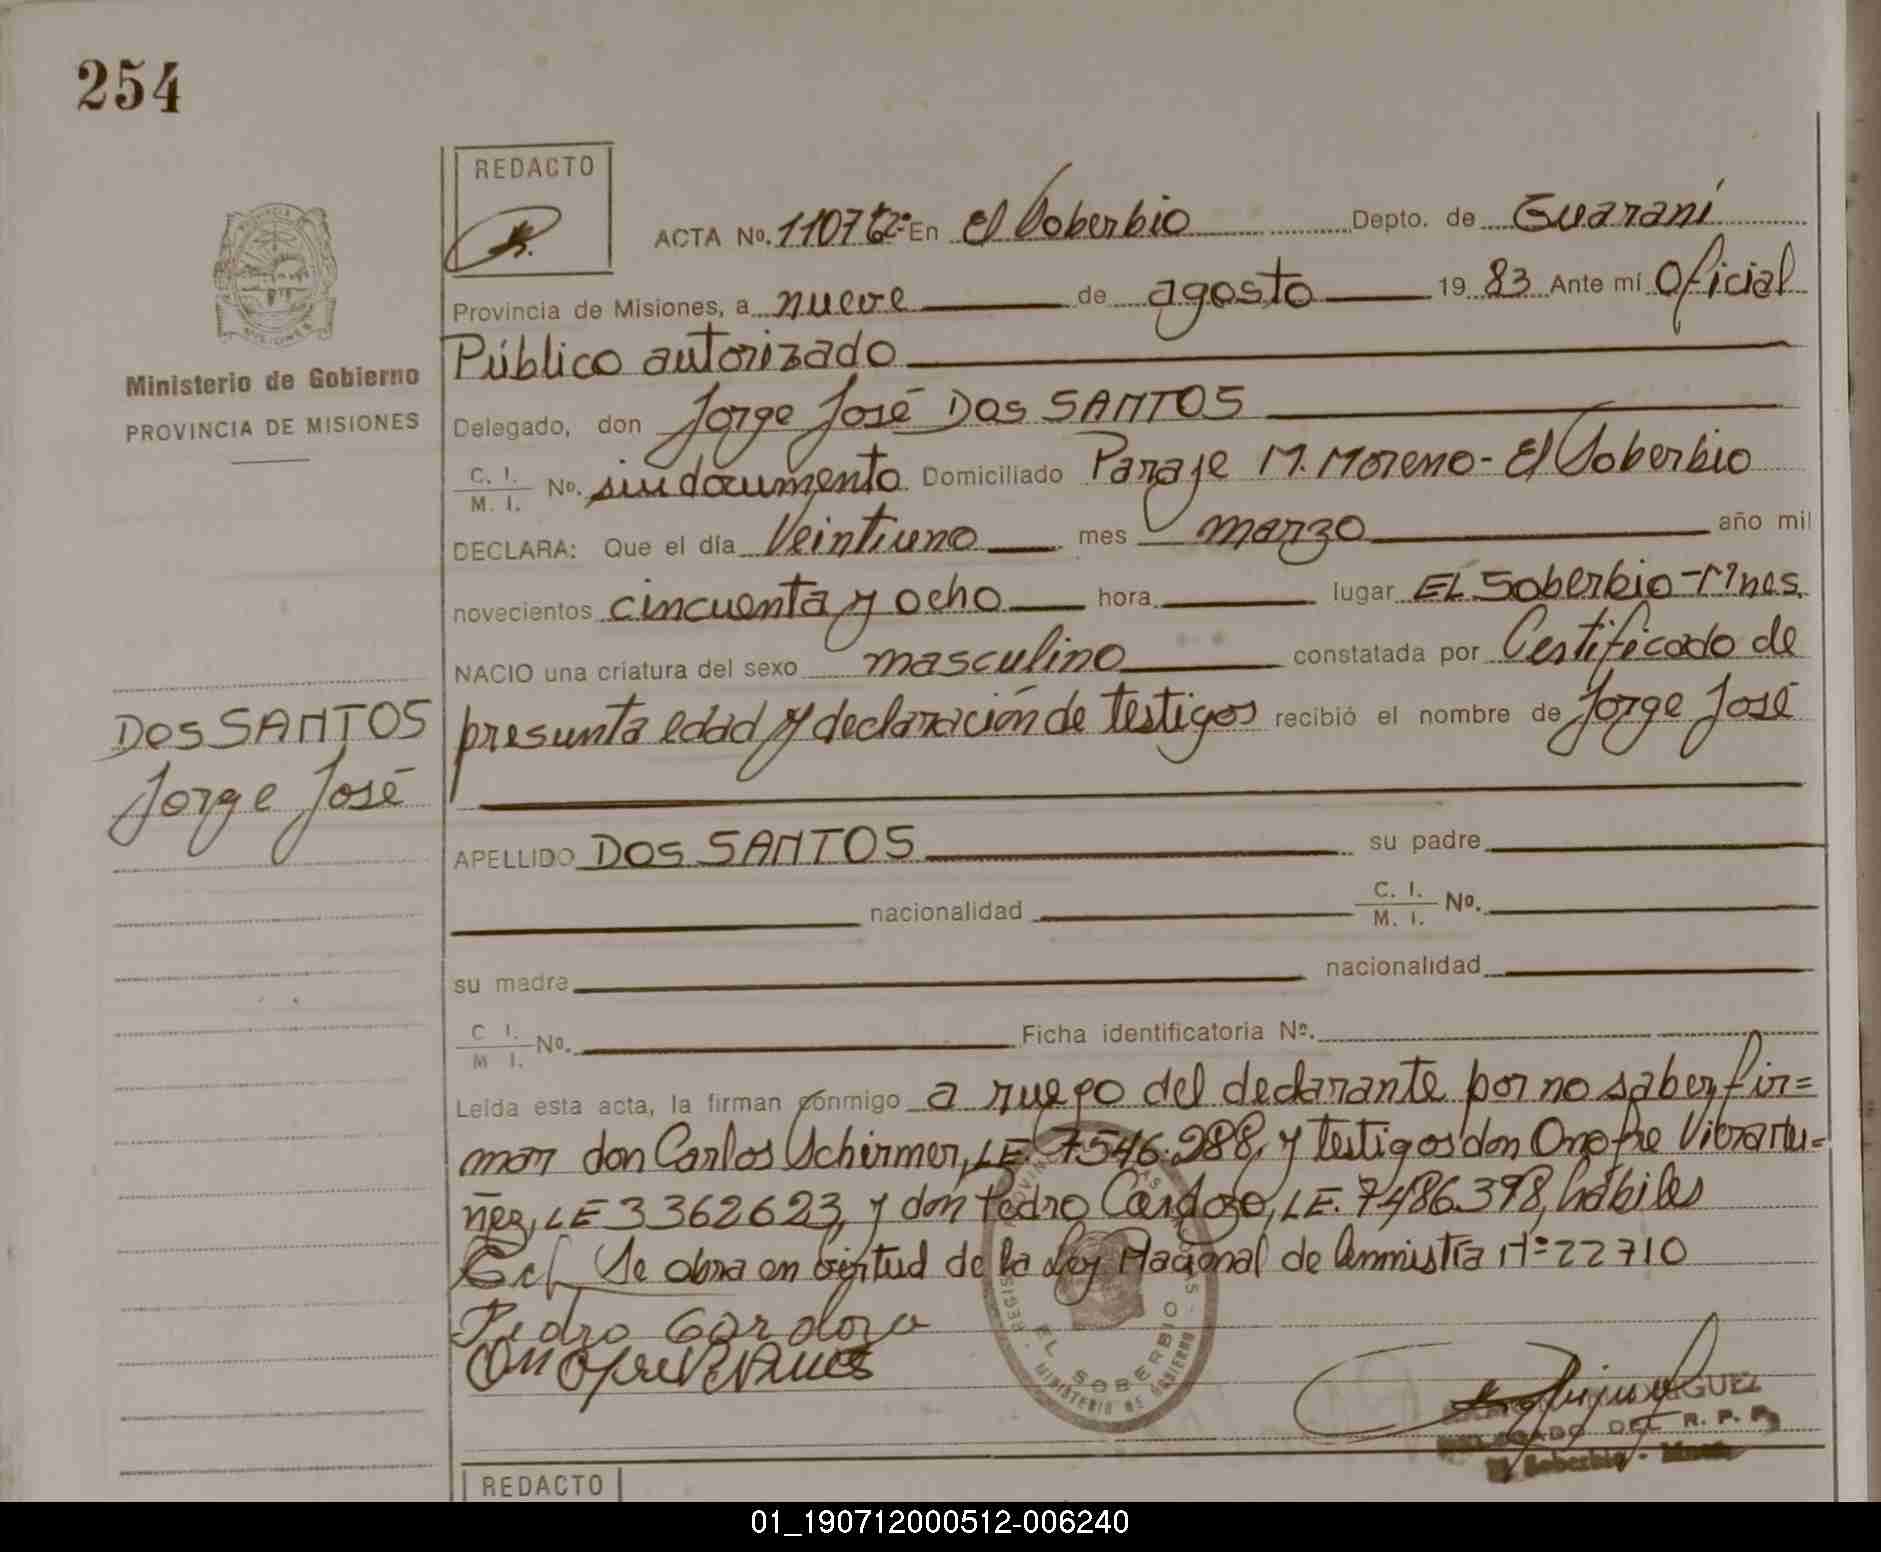 254
REDACTO
ACTA No. En El Soberbio Depto. de Guaraní
Provincia de Misiones, a nueve de agosto 19 83 Ante mí Oficial
Público autorizado
Ministerio de Gobierno
PROVINCIA DE MISIONES
Delegado, don Jorge José Dos SANTOS
C. I. M. I. No. sin documento Domiciliado Paraje M. Moreno - El Soberbio
DECLARA: Que el día Veintiuno mes marzo año mil
novecientos cincuenta y ocho hora lugar EL Soberbio - Mnes.
NACIO una criatura del sexo masculino constatada por Certificado de
presunta edad y declaración de testigos recibió el nombre de Jorge José
Dos SANTOS
Jorge José
APELLIDO Dos SANTOS su padre
nacionalidad C. I. M. I. No.
su madre nacionalidad
C. I. M. I. No. Ficha identificatoria No.
Leída esta acta, la firman conmigo a ruego del declarante por no saber fir=
mar don Carlos Schirmer, LE. 7546.288, y testigos don Onofre
ñez, LE 3362623, y don Pedro Cardozo, LE. 7486.398, hábiles
Se obra en virtud de la Ley Nacional de Amnistía Nº 22710
Pedro Cardozo
EL SOBERBIO
MINISTERIO DE GOBIERNO
DELEGADO DEL R. P. P.
El Soberbio - Mnes
REDACTO
01_190712000512-006240